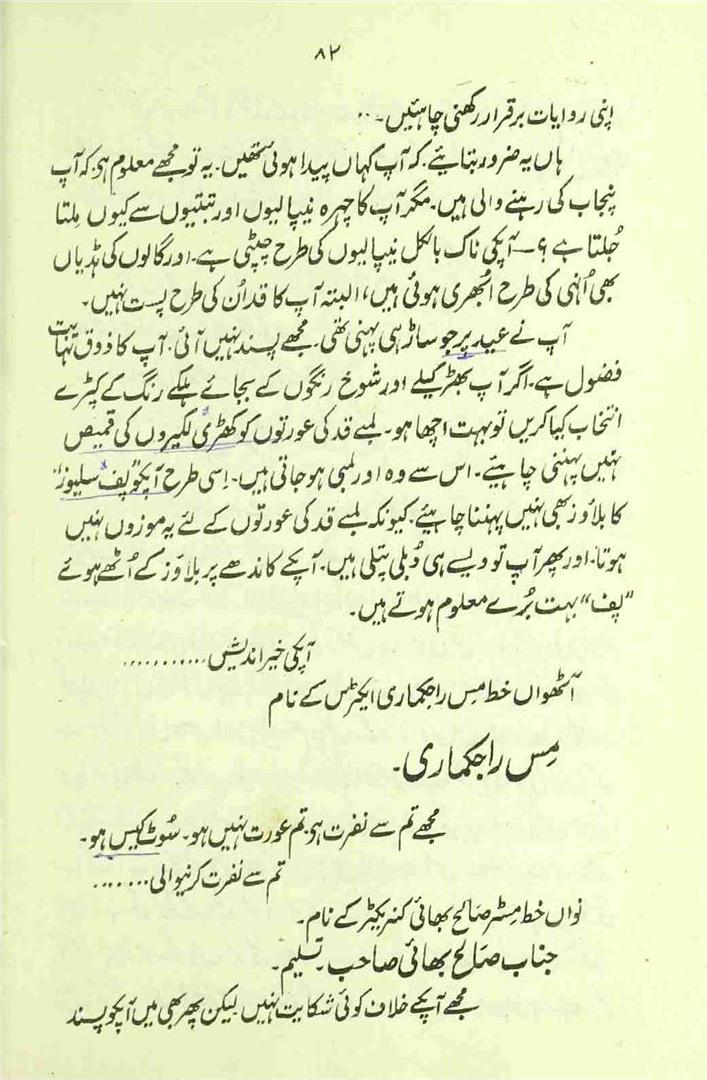 ۸۲
اپنی روایات برقرار رکھنی چاہئیں۔...
ہاں یہ ضرور بتایئے۔ کہ آپ کہاں پیدا ہوئی تھیں۔ یہ تو مجھے معلوم ہی، کہ آپ
پنجاب کی رہنے والی ہیں۔ مگر آپ کا چہرہ نیپالیوں اور تبتیوں سے کیوں مِلتا
جُلتا ہے؟ ــ آپکی ناک بالکل نیپالیوں کی طرح چپٹی ہے۔ اور گالوں کی ہڈیاں
بھی اُنہی کی طرح اُبھری ہوئی ہیں، البتہ آپ کا قد اُن کی طرح پست نہیں۔
آپ نے عید پر جو ساڑھی پہنی تھی۔ مجھے پسند نہیں آئی۔ آپ کا ذوق نہایت
فضول ہے۔ اگر آپ بھڑکیلے اور شوخ رنگوں کے بجائے ہلکے رنگ کے کپڑے
انتخاب کیا کریں تو بہت اچھا ہو۔ لمبے قد کی عورتوں کو کھڑی لکیروں کی قمیص
نہیں پہننی چاہیئے۔ اس سے وہ اور لمبی ہو جاتی ہیں۔ اِسی طرح آپکو "پف سلیوز"
کا بلاؤز بھی نہیں پہننا چاہیئے۔ کیونکہ لمبے قد کی عورتوں کے لئے یہ موزوں نہیں
ہوتا۔ اور پھر آپ تو ویسے ہی دُبلی پتلی ہیں۔ آپکے کاندھے پر بلاؤز کے اُٹھے ہوئے
"پف" بہت بُرے معلوم ہوتے ہیں۔
آپکی خیر اندیش...........
آٹھواں خط مِس راجکماری ایکٹرس کے نام
مِس راجکماری۔
مجھے تم سے نفرت ہی، تم عورت نہیں ہو۔ سُوٹ کیس ہو۔
تم سے نفرت کرنیوالی.......
نواں خط مِسٹر صَالح بھائی کنٹریکٹر کے نام۔
جناب صَالح بھائی صاحب۔ تسلیم۔
مجھے آپکے خلاف کوئی شکایت نہیں لیکن پھر بھی میں آپکو پسند